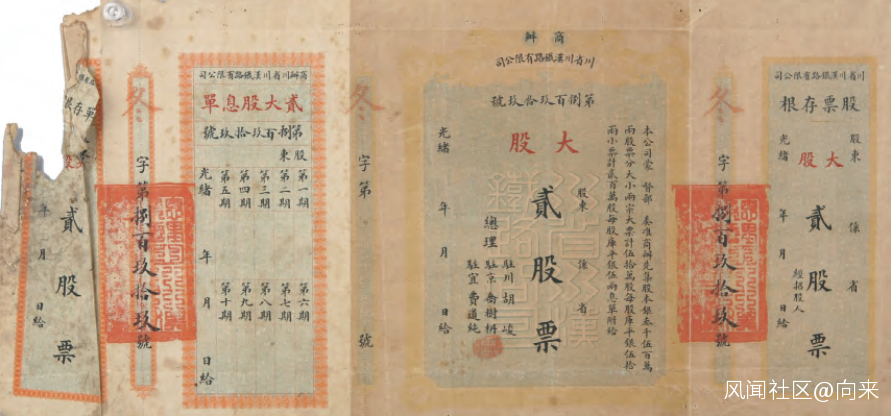 川省川漢鐵路有限公司
股票存根
股東 係 省
大股
貳股票
經招股人
光緒 年 月 日給
冬字第捌百玖拾玖號
商辦
川省川漢鐵路有限公司
第捌百玖拾玖號
大股
本公司蒙 督部 奏准商辦先集股本銀叁千伍百萬
兩股票分大小兩宗大票計伍拾萬股每股庫平銀伍拾
兩小票計貳百萬股每股庫平銀伍兩息單附給
股東 係 省
貳股票
總理
駐川胡峻
駐京喬樹枏
駐宜費道純
光緒 年 月 日給
冬字第 號
商辦川省川漢鐵路有限公司
貳大股息單
第捌百玖拾玖號
股東
第一期 第六期
第二期 第七期
第三期 第八期
第四期 第九期
第五期 第十期
光緒 年 月 日給
冬字第捌百玖拾玖號
單存根
貳股票
年 月 日給
风闻社区@向来